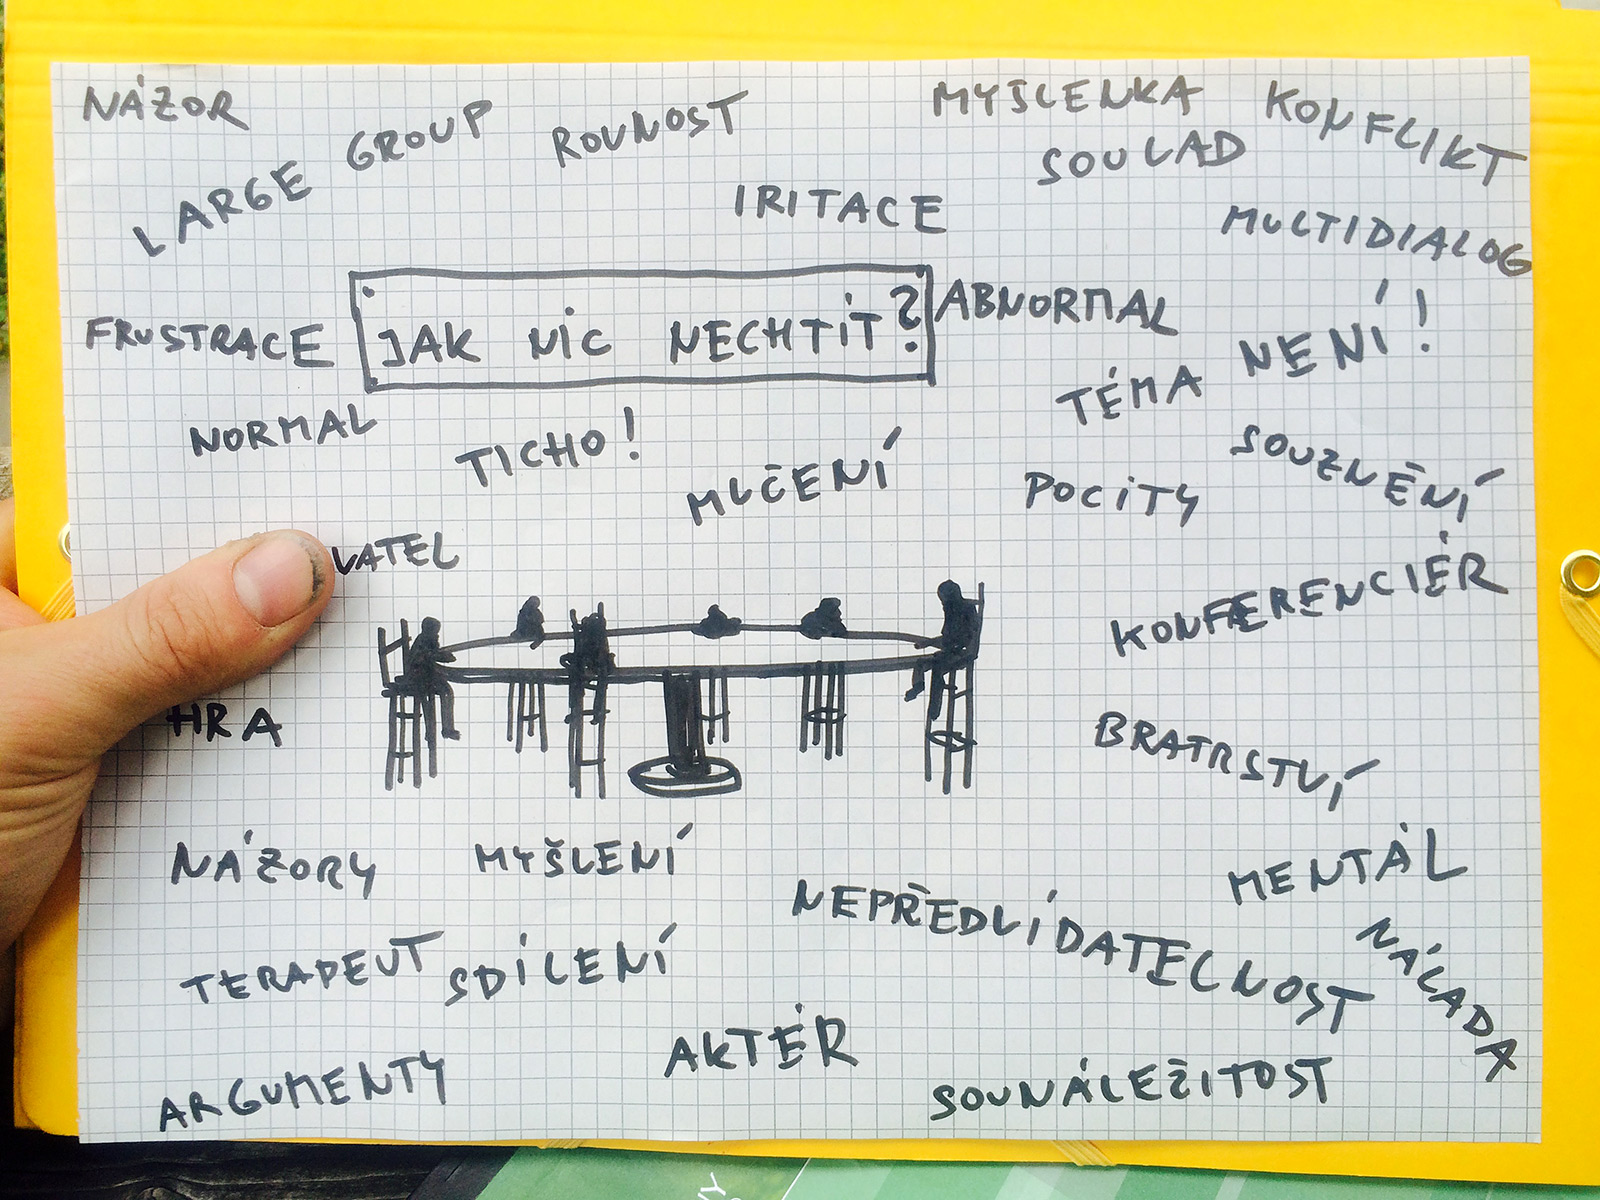 NÁZOR
LARGE GROUP
ROVNOST
MYŠLENKA
KONFLIKT
SOULAD
IRITACE
MULTIDIALOG
FRUSTRACE
JAK NIC NECHTÍT?
ABNORMAL
TÉMA NENÍ!
NORMAL
TICHO!
MLČENÍ
POCITY
SOUZNĚNÍ
VATEL
KONFERENCIÉR
HRA
BRATRSTVÍ
NÁZORY
MYŠLENÍ
MENTÁL
NÁLADA
NEPŘEDVÍDATELNOST
TERAPEUT
SDÍLENÍ
AKTÉR
ARGUMENTY
SOUNÁLEŽITOST